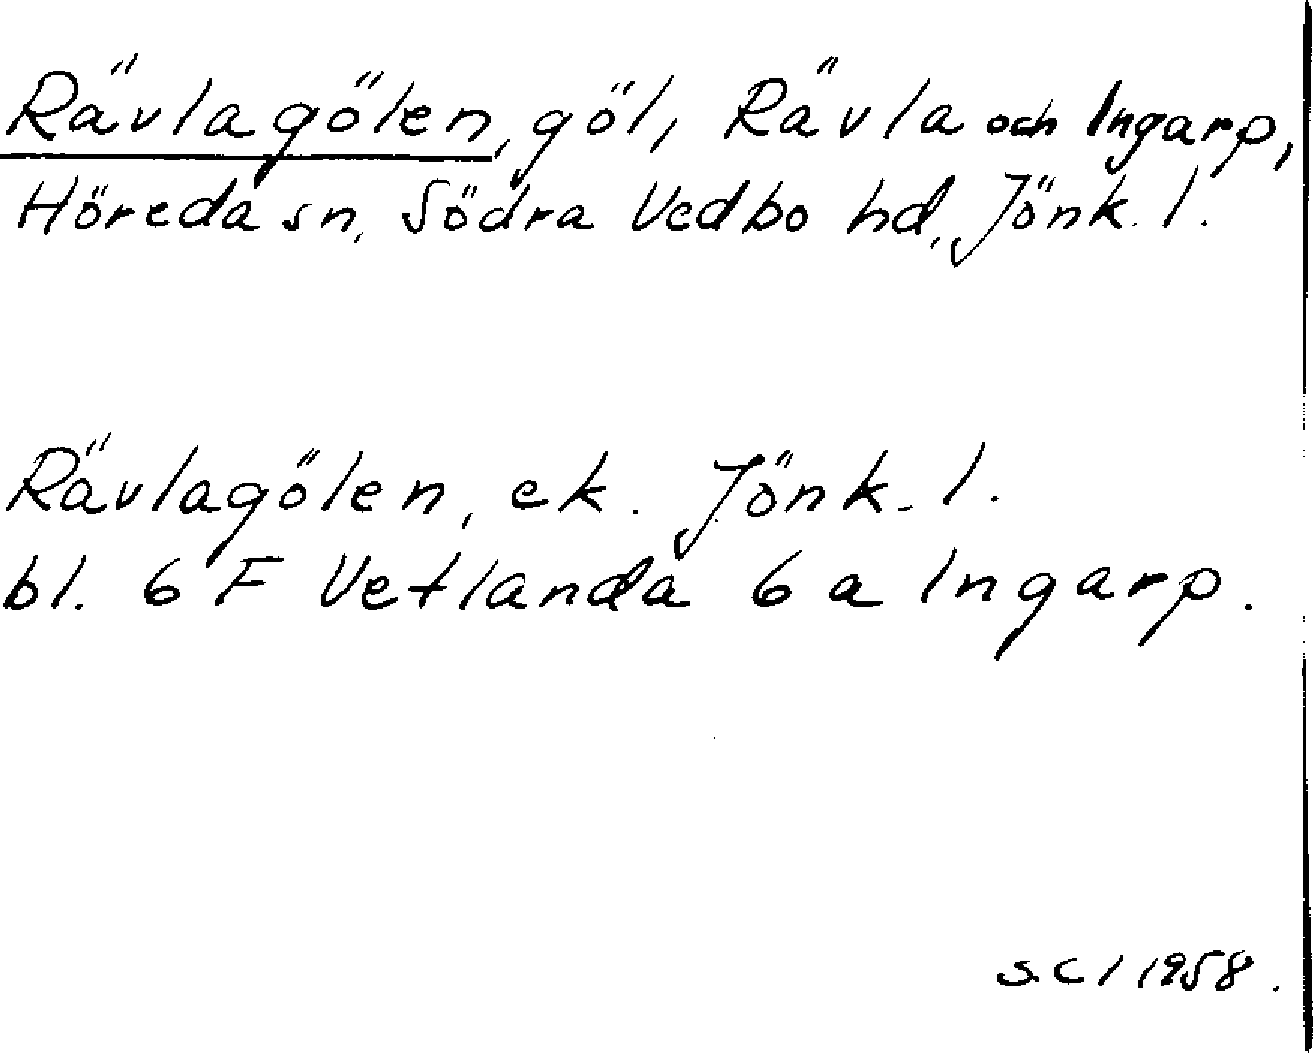 Rävlagölen, göl, Rävla och Ingarp,
Höreda sn, Södra Vedbo hd, Jönk. l.
Rävlagölen, ek. Jönk. l.
bl. 6 F Vetlanda 6 a Ingarp.
S.C / 1958.